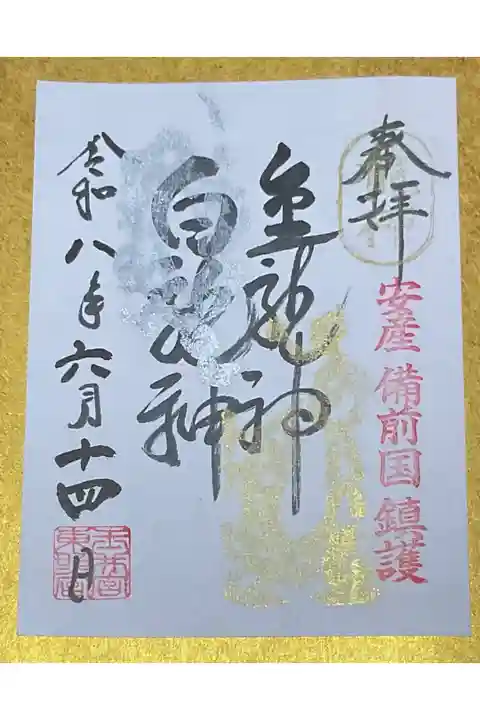 奉拝
安産 備前国 鎮護
金龍神
白龍神
令和八年六月十四日